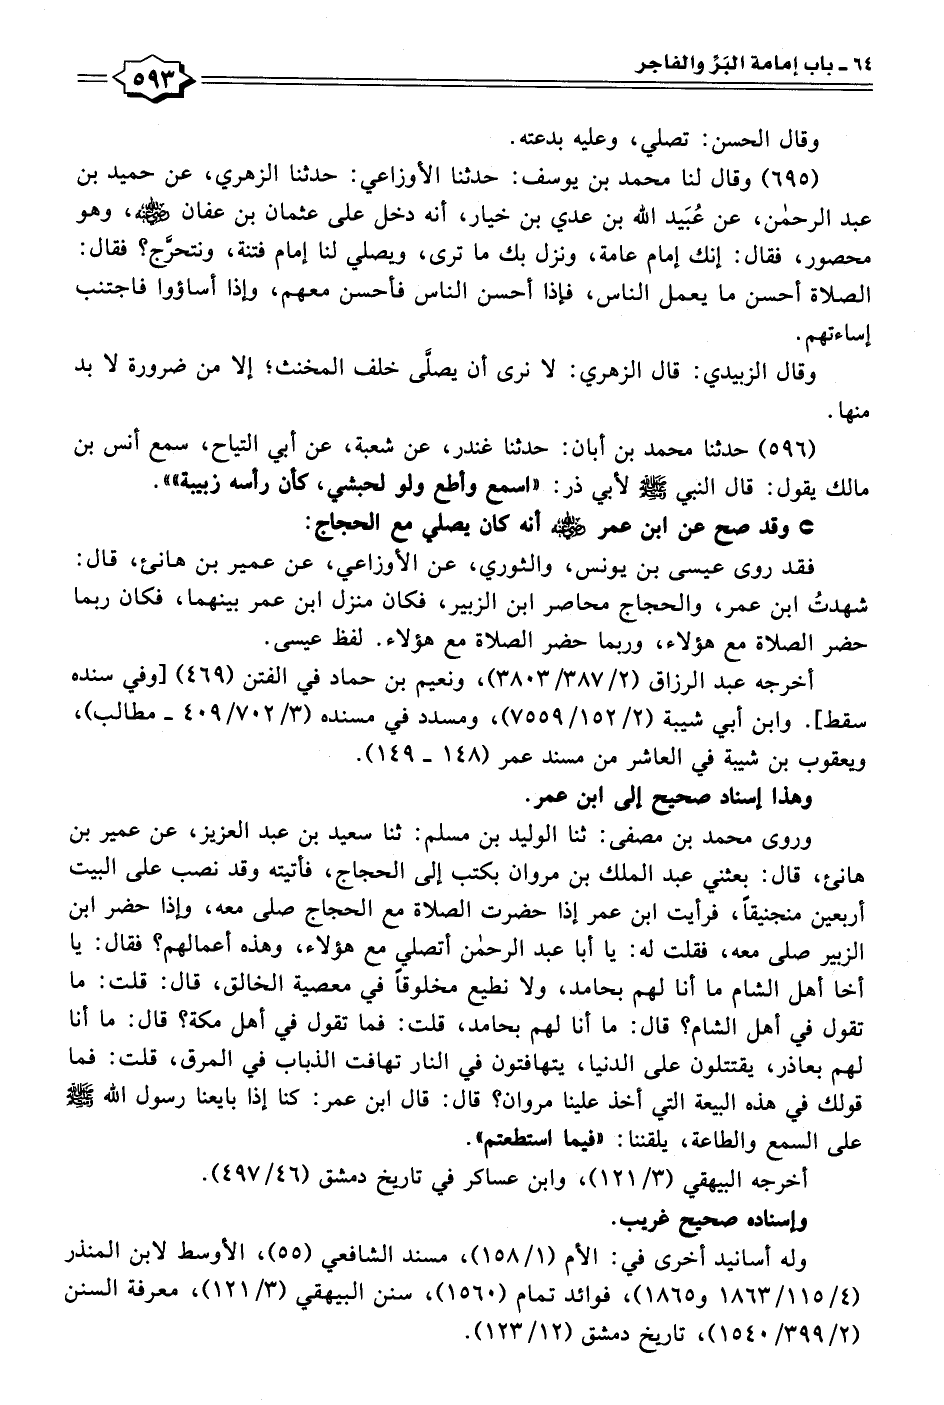 ٦٤ - باب إمامة البَرِّ والفاجر
٥٩٣
وقال الحسن: تصلي، وعليه بدعته.
(٦٩٥) وقال لنا محمد بن يوسف: حدثنا الأوزاعي: حدثنا الزهري، عن حميد بن
عبد الرحمٰن، عن عُبَيد الله بن عدي بن خيار، أنه دخل على عثمان بن عفان رضي الله عنه، وهو
محصور، فقال: إنك إمام عامة، ونزل بك ما ترى، ويصلي لنا إمام فتنة، ونتحرَّج؟ فقال:
الصلاة أحسن ما يعمل الناس، فإذا أحسن الناس فأحسن معهم، وإذا أساؤوا فاجتنب
إساءتهم.
وقال الزبيدي: قال الزهري: لا نرى أن يصلَّى خلف المخنث؛ إلا من ضرورة لا بد
منها.
(٥٩٦) حدثنا محمد بن أبان: حدثنا غندر، عن شعبة، عن أبي التياح، سمع أنس بن
مالك يقول: قال النبي ﷺ لأبي ذر: «اسمع وأطع ولو لحبشي، كأن رأسه زبيبة»».
⊂ وقد صح عن ابن عمر رضي الله عنه أنه كان يصلي مع الحجاج:
فقد روى عيسى بن يونس، والثوري، عن الأوزاعي، عن عمير بن هانئ، قال:
شهدتُ ابن عمر، والحجاج محاصر ابن الزبير، فكان منزل ابن عمر بينهما، فكان ربما
حضر الصلاة مع هؤلاء، وربما حضر الصلاة مع هؤلاء. لفظ عيسى.
أخرجه عبد الرزاق (٢/ ٣٨٧/ ٣٨٠٣)، ونعيم بن حماد في الفتن (٤٦٩) [وفي سنده
سقط]. وابن أبي شيبة (٢/ ١٥٢/ ٧٥٥٩)، ومسدد في مسنده (٣/ ٧٠٢/ ٤٠٩ - مطالب)،
ويعقوب بن شيبة في العاشر من مسند عمر (١٤٨ - ١٤٩).
وهذا إسناد صحيح إلى ابن عمر.
وروى محمد بن مصفى: ثنا الوليد بن مسلم: ثنا سعيد بن عبد العزيز، عن عمير بن
هانئ، قال: بعثني عبد الملك بن مروان بكتب إلى الحجاج، فأتيته وقد نصب على البيت
أربعين منجنيقاً، فرأيت ابن عمر إذا حضرت الصلاة مع الحجاج صلى معه، وإذا حضر ابن
الزبير صلى معه، فقلت له: يا أبا عبد الرحمٰن أتصلي مع هؤلاء، وهذه أعمالهم؟ فقال: يا
أخا أهل الشام ما أنا لهم بحامد، ولا نطيع مخلوقاً في معصية الخالق، قال: قلت: ما
تقول في أهل الشام؟ قال: ما أنا لهم بحامد، قلت: فما تقول في أهل مكة؟ قال: ما أنا
لهم بعاذر، يقتتلون على الدنيا، يتهافتون في النار تهافت الذباب في المرق، قلت: فما
قولك في هذه البيعة التي أخذ علينا مروان؟ قال: قال ابن عمر: كنا إذا بايعنا رسول الله ﷺ
على السمع والطاعة، يلقننا: «فيما استطعتم».
أخرجه البيهقي (٣/ ١٢١)، وابن عساكر في تاريخ دمشق (٤٦/ ٤٩٧).
وإسناده صحيح غريب.
وله أسانيد أخرى في: الأم (١/ ١٥٨)، مسند الشافعي (٥٥)، الأوسط لابن المنذر
(٤/ ١١٥/ ١٨٦٣ و١٨٦٥)، فوائد تمام (١٥٦٠)، سنن البيهقي (٣/ ١٢١)، معرفة السنن
(٢/ ٣٩٩/ ١٥٤٠)، تاريخ دمشق (١٢/ ١٢٣).